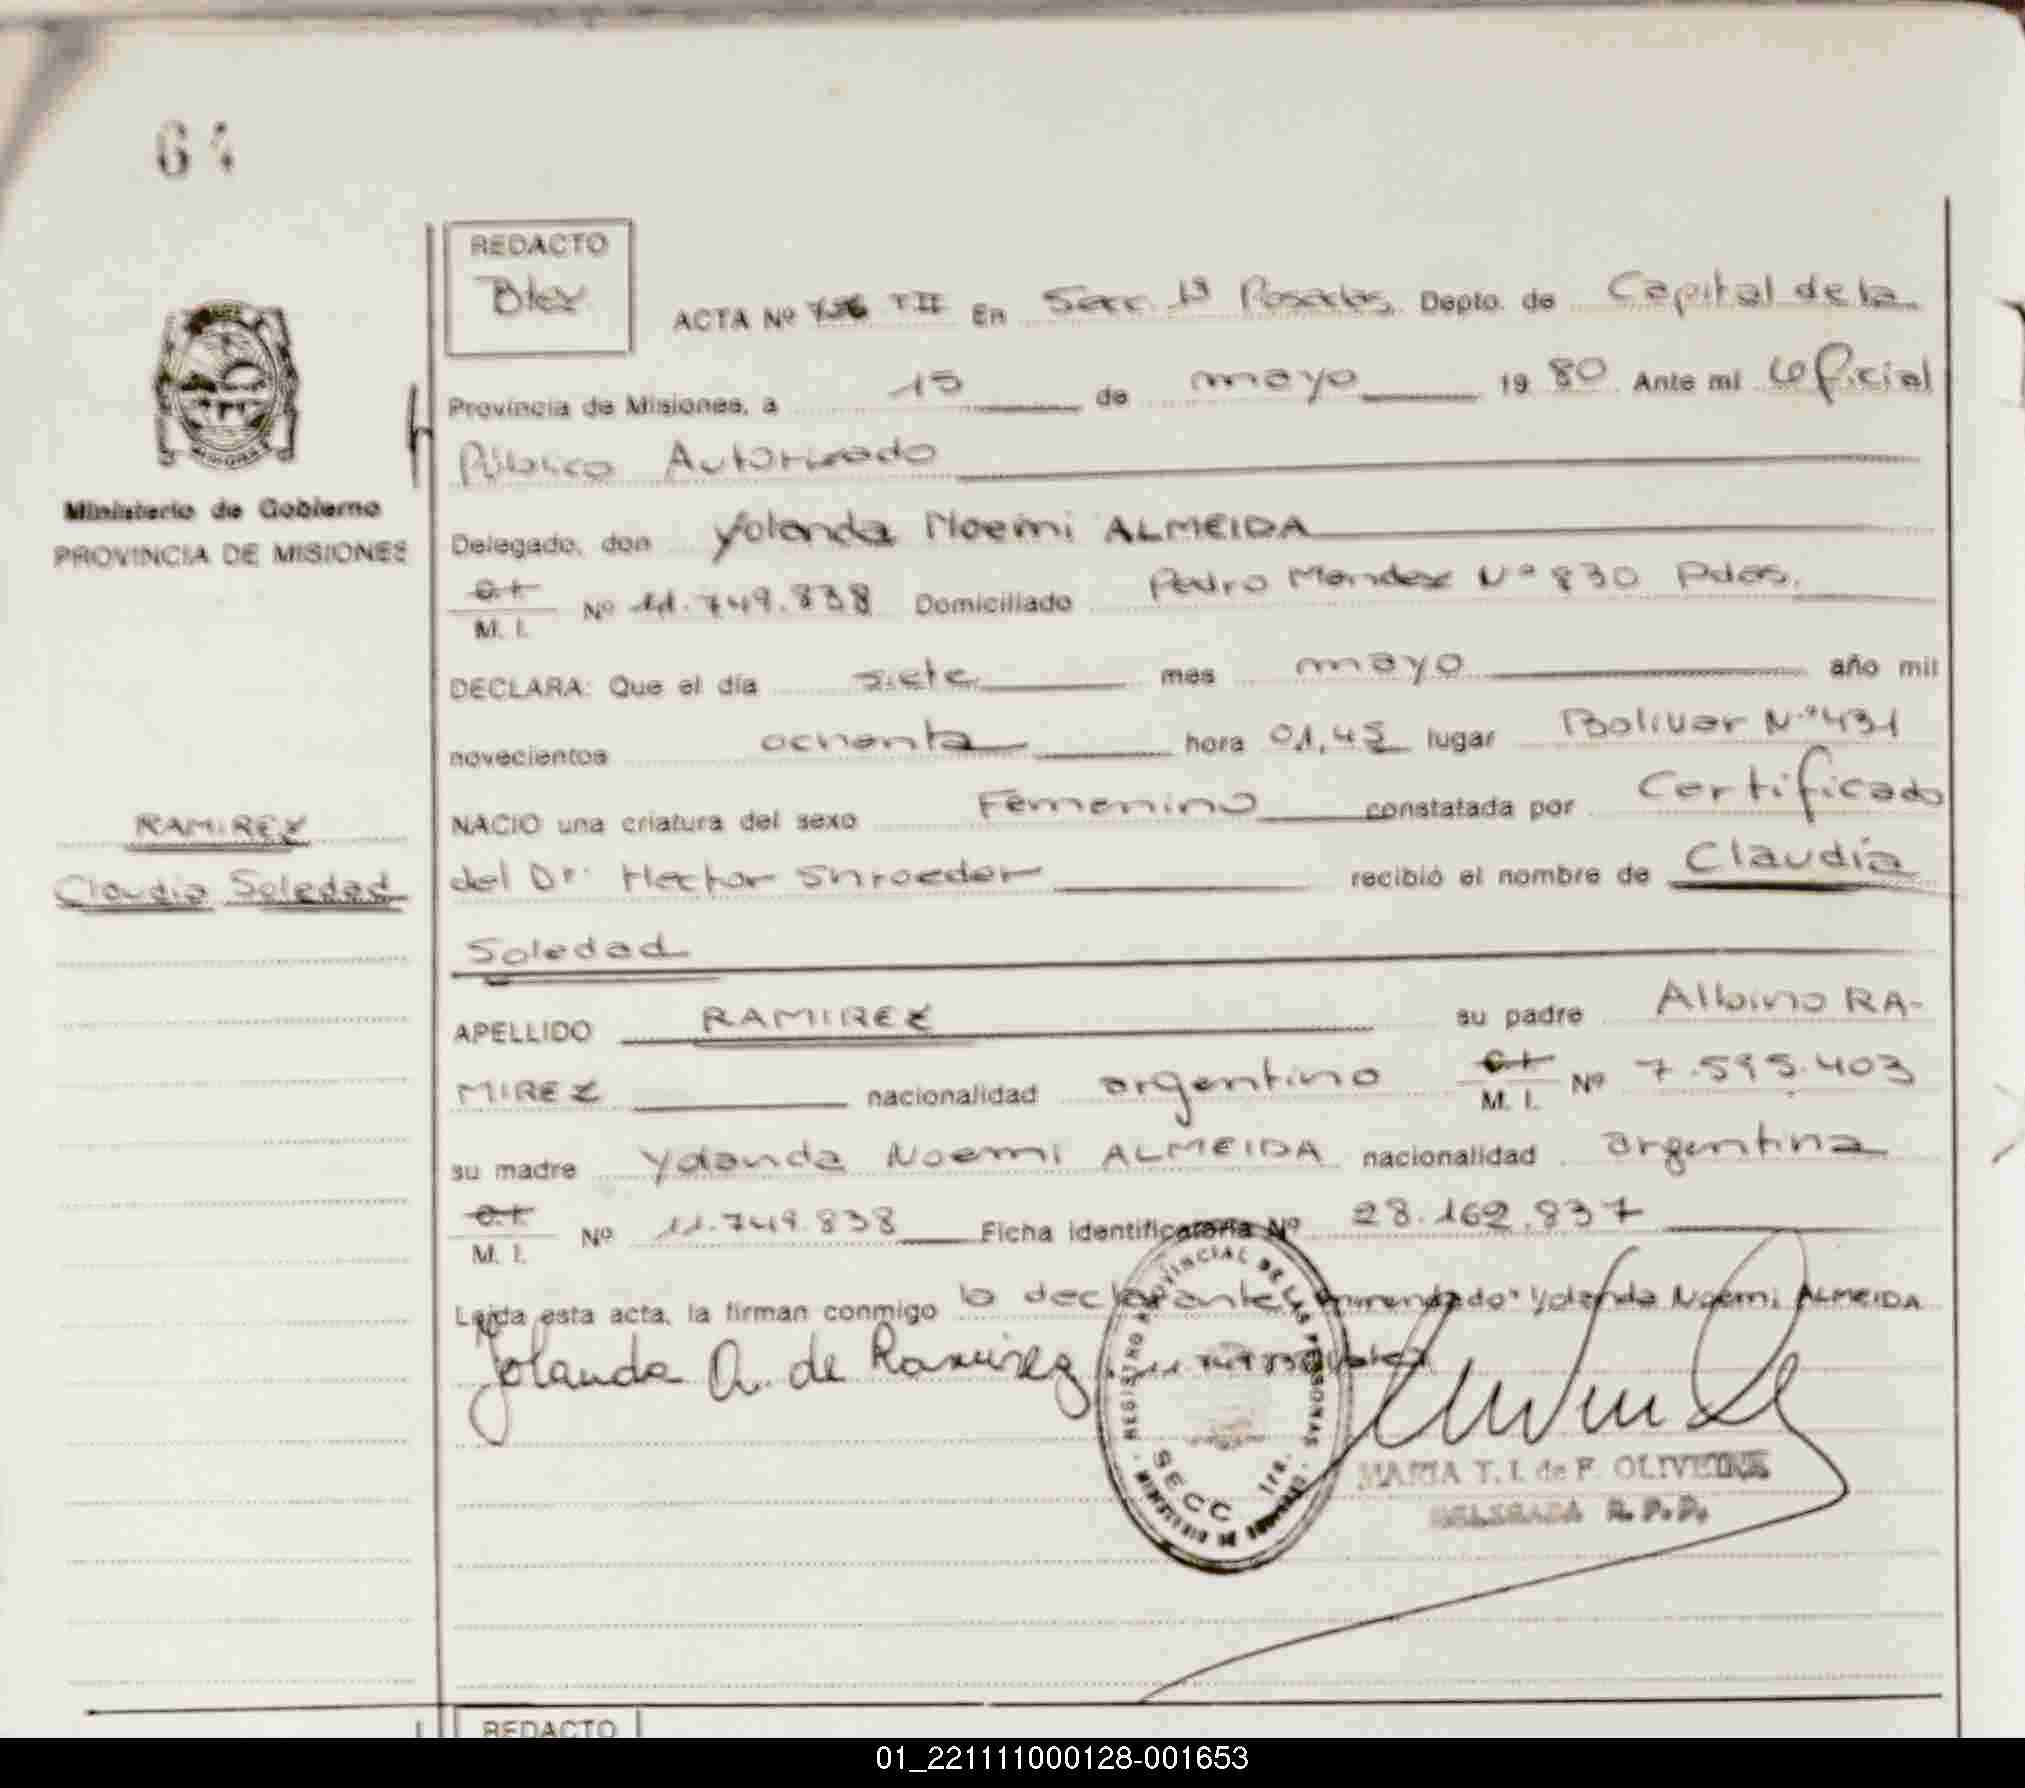 64
REDACTO
ACTA Nº TII En Secc. 1ª Posadas. Depto. de Capital de la
Provincia de Misiones, a 15 de mayo 19 80 Ante mi Oficial
Público Autorizado
Ministerio de Gobierno
PROVINCIA DE MISIONES
Delegado, don Yolanda Noemi ALMEIDA
C.I.
M. I. Nº 11.749.838 Domiciliado Pedro Mendez Nº 830 Pdas.
DECLARA: Que el día siete mes mayo año mil
novecientos ochenta hora 01,45 lugar Bolivar Nº 431
NACIO una criatura del sexo Femenino constatada por Certificado
RAMIREZ
Claudia Soledad
del Dr. Hector Shroeder recibió el nombre de Claudia
Soledad
APELLIDO RAMIREZ su padre Albino RA-
MIREZ nacionalidad argentino C.I. M. I. Nº 7.595.403
su madre Yolanda Noemi ALMEIDA nacionalidad argentina
C.I.
M. I. Nº 11.749.838 Ficha identificatoria Nº 28.162.837
Leída esta acta, la firman conmigo la declarante, enmendado "Yolanda Noemi ALMEIDA
Yolanda A. de Ramirez
REGISTRO PROVINCIAL DE LAS PERSONAS
SECC 1ra.
MINISTERIO DE GOBIERNO
MARIA T. I. de F. OLIVEIRA
DELEGADA R. P. P.
REDACTO
01_221111000128-001653